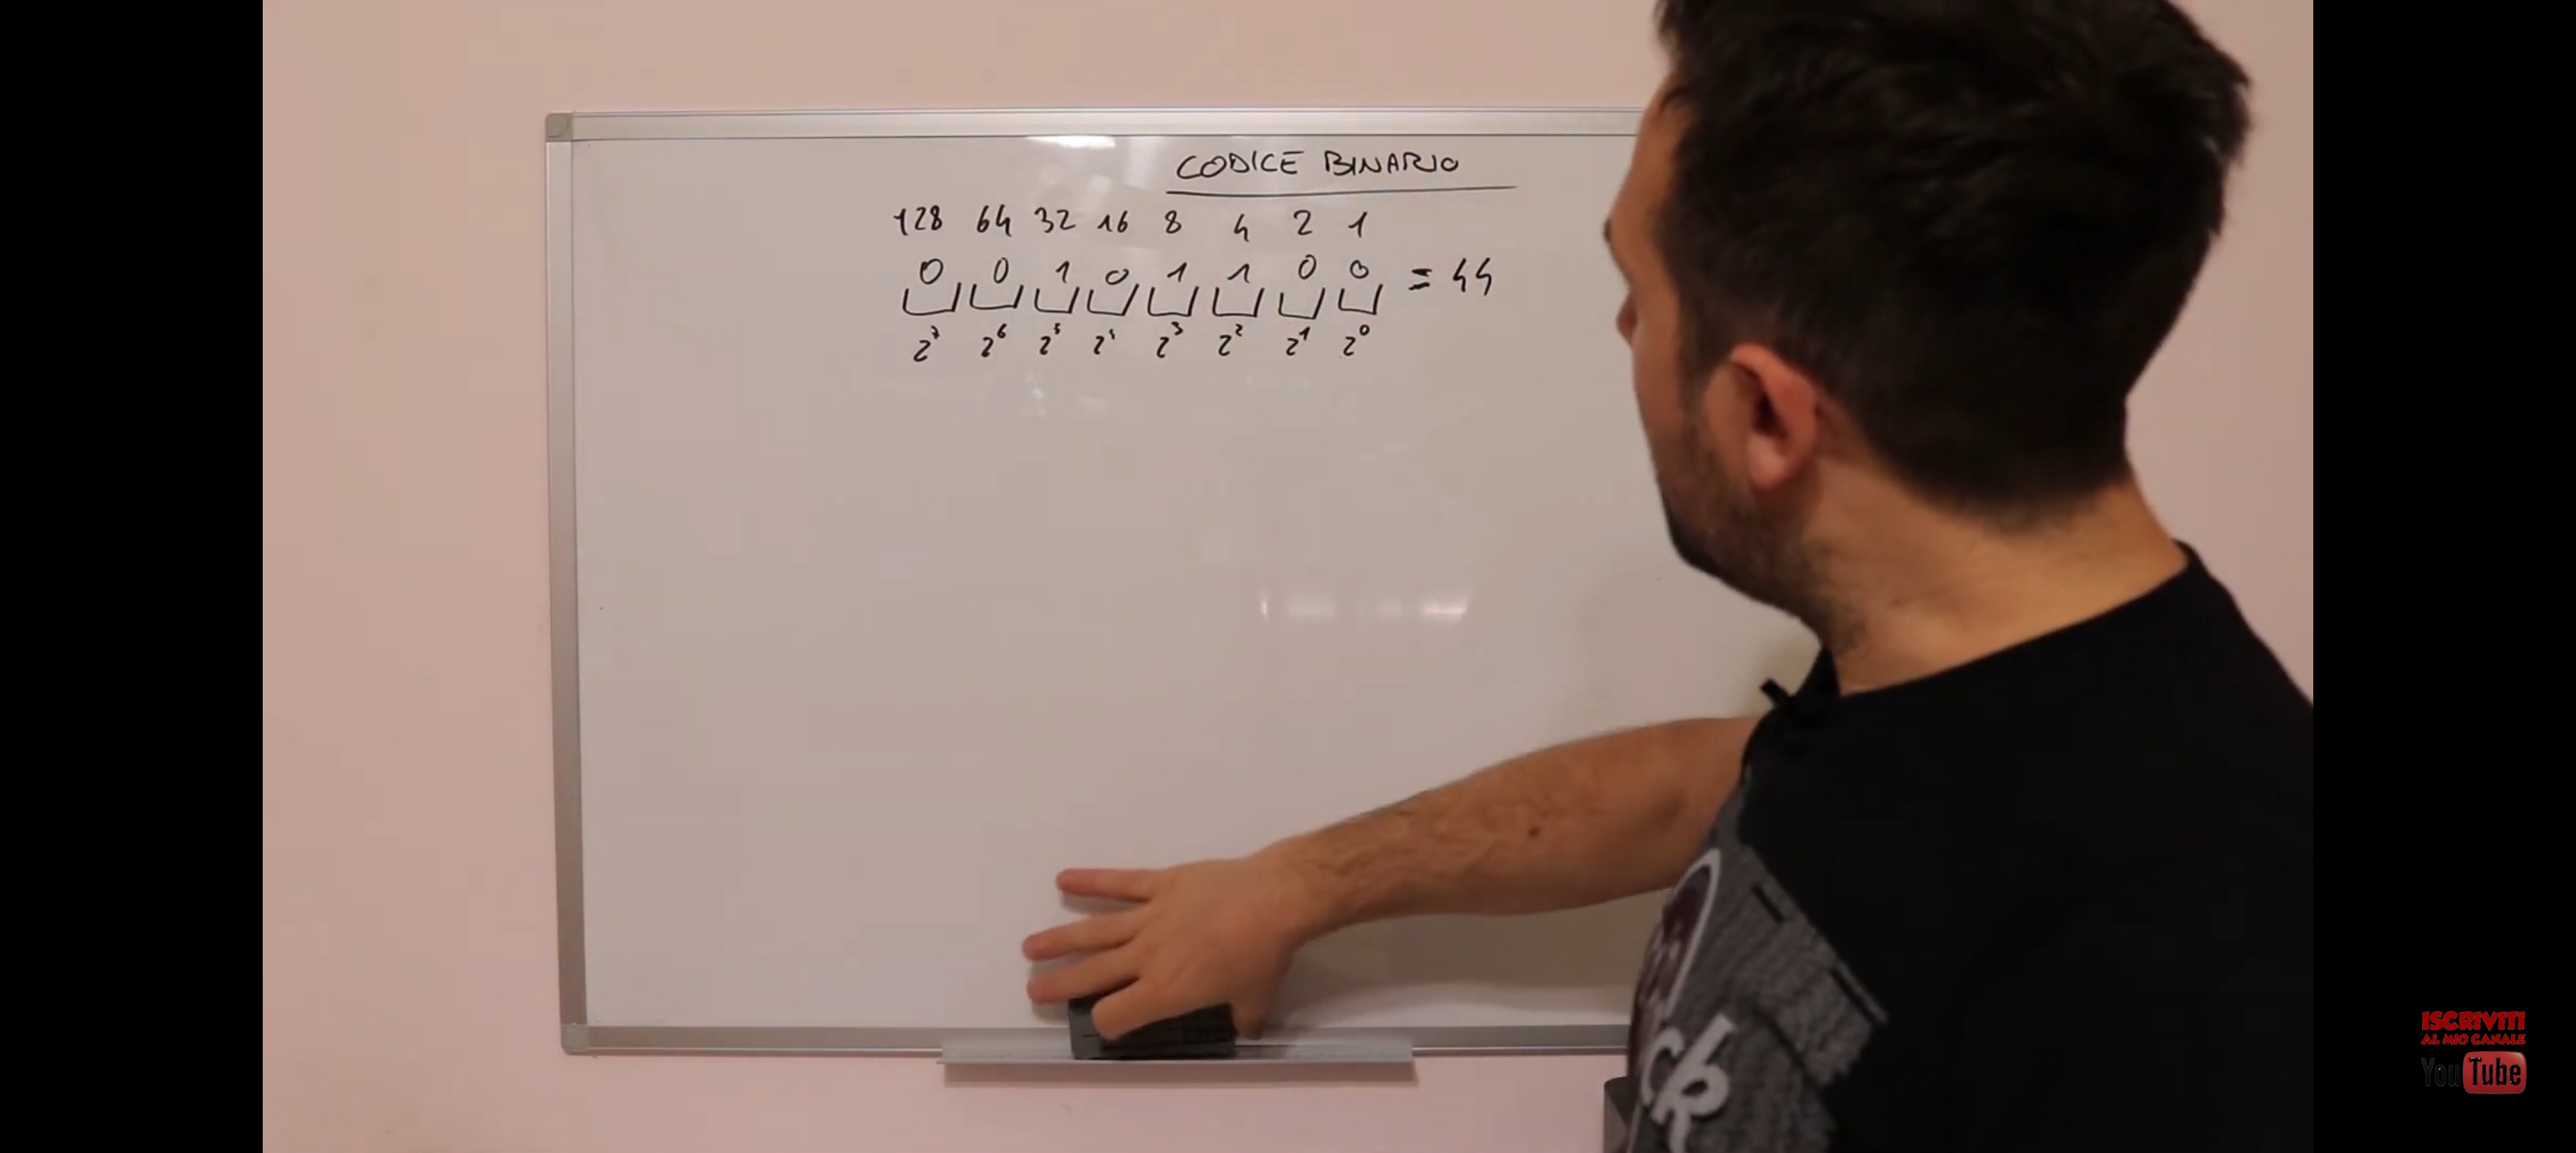 CODICE BINARIO
128 64 32 16 8 4 2 1
0 0 1 0 1 1 0 0 = 44
2⁷ 2⁶ 2⁵ 2⁴ 2³ 2² 2¹ 2⁰
ck
ISCRIVITI
AL MIO CANALE
YouTube